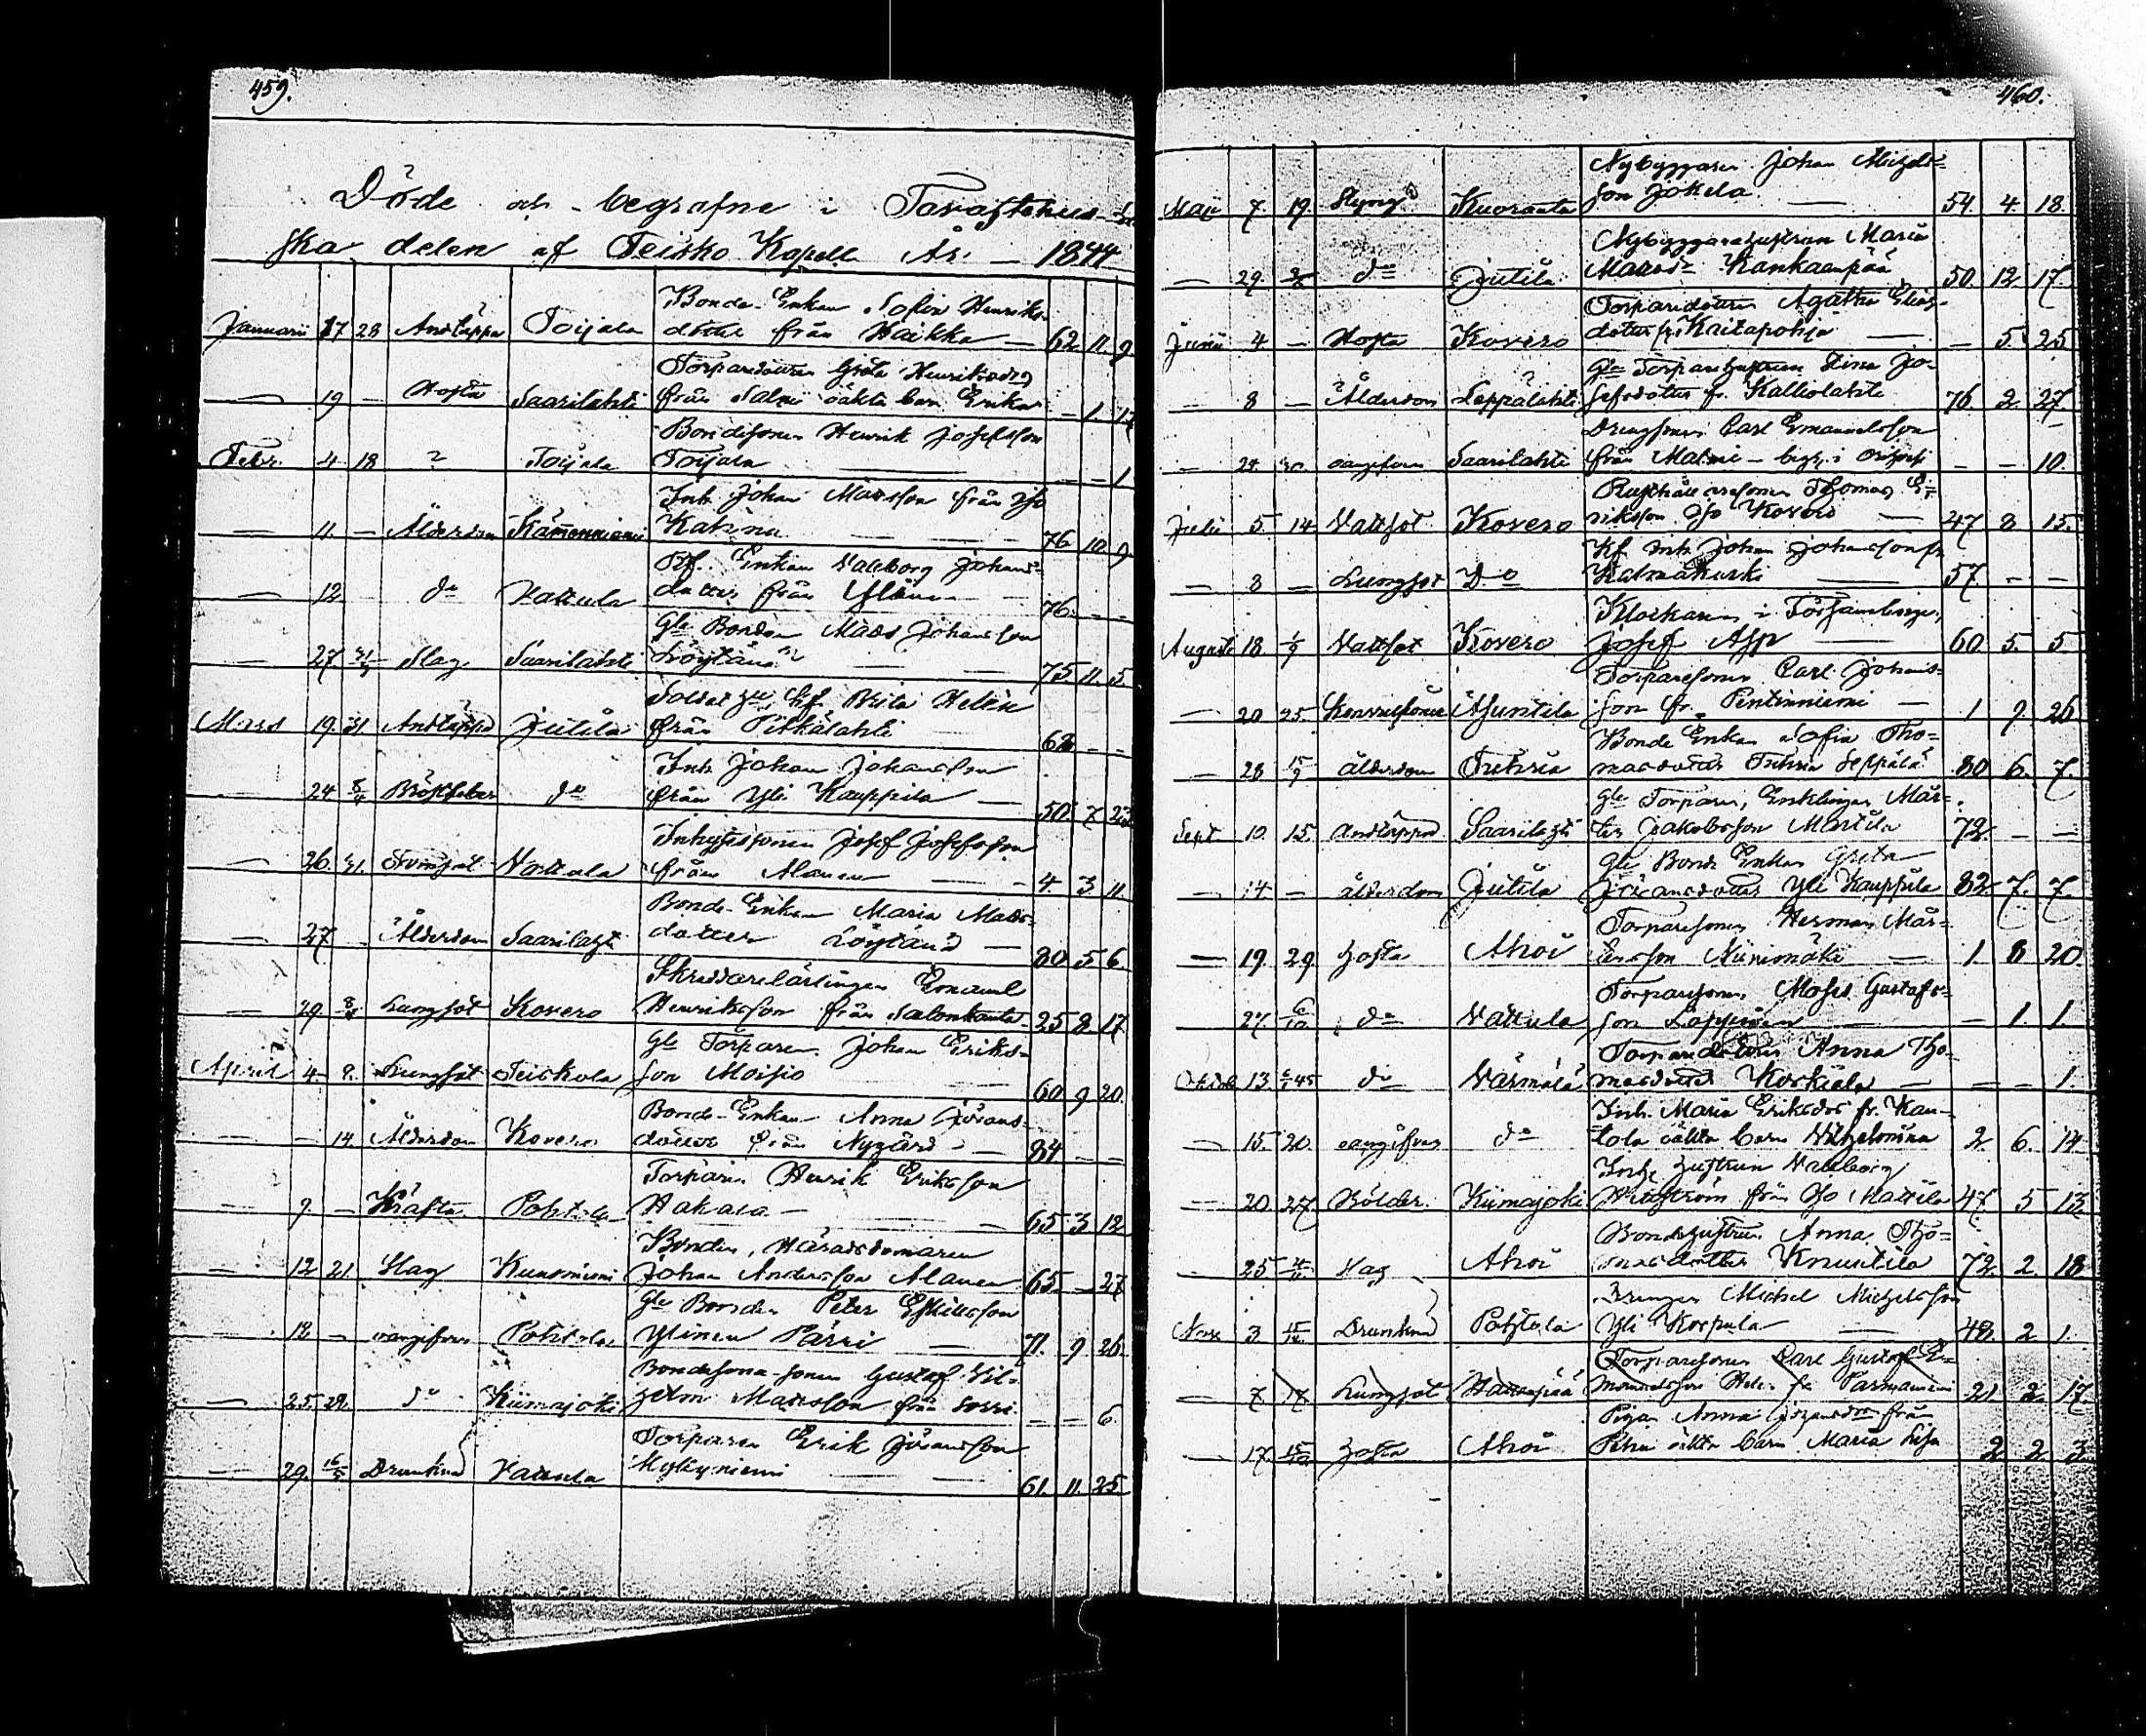 459.
Döde och begrafne i Tavastehus-
ska delen af Teisko Kapell År 1844
Januarii 17 28 Andtäppa Toijala Bonde-Enkan Sofia Henriks-
dotter från Kaikka 62 11. 9
— 19 — Hosta Saarilahti Torparedottern Greta Henriksdr
från Salmi oäkta barn Erika — 1.
Febr. 4 18 ? Toijala Bondesonen Henrik Josefsson
Toijala — — 1
— 11. — Ålderdom Kämmenniemi Inh. Johan Matsson från
Katina 76 10 9
— 12 d:o Vattula Enkan Valborg Johans-
dotter från 76 — —
— 27 Slag Saarilahti Gle Bonden Mads Johansson
Löytänä 75 11. 5.
Mars 19. 31 Andtäppa Jutila Brita Helin
från Pitkälahti 62 — —
— 24 Bröstfeber d:o Inh. Johan Johansson
från Yli Kauppila 50 7 23
— 26. 31. Vattula Inhysessonen Josef Josefsson
från Alanen 4 3 11.
— 27 Ålderdom Saarilahti Bonde-Enkan Maria Mads-
dotter Löytänä 80 5 6
— 29 8/4 Lungsot Kovero Skräddarelärlingen Emanuel
Henriksson från Salonkanta 25 8 17
April 4 8. Lungsot Teiskola Gle Torparen Johan Eriks-
son Moisio 60 9 20
— — 14. Ålderdom Kovero Bonde-Enkan Anna Jörans-
dotter från Nygård 84 — —
— 9. — Kräfta Pohtola Torparen Henrik Eriksson
Hakala 65 3 12
— 12 21. Slag Kunnniemi Bonden, Häradsdomaren
Johan Andersson Alanen 65 — 27
— 12 — oangifven Pohtola Gle Bonden Peter Eskilsson
Ylinen Pärri 71. 9 26
— 25. 28. d:o Kiimajoki Bondesona-sonen Gustaf Vil-
helm Matsson från Sorri — — 6.
— 29. 16/5 Drunknad Vattula Torparen Erik Jöransson
Myllyniemi 61. 11. 25
460.
Maji 7. 19. Styng Kuoranta Nybyggaren Johan Michels-
son Jokela 54 4 18.
— 29. d:o Jutila Nybyggarehustrun Maria
Matsdr Kankaanpää 50. 12 17.
Junii 4 — Hosta Kovero Torparedottern Agatha Elias-
dotter fr. Kaitapohja — 5. 25
— 8 — Ålderdom Leppälahti Gle Torparehustrun Stina Jo-
sefsdotter fr. Kalliolahti 76 2 27.
— 24 30. oangifven Saarilahti Drengsonen Carl Emanuelsson
från Malmi — begr. i — — 10.
Julii 5. 14 Vattsot Kovero Rusthållaresonen Thomas E-
riksson Kovero 47 8 15.
— 8 — Lungsot D:o Inh. Johan Johansson fr.
Kalmakurki 57. — —
Augusti 18 1/9 Vattsot Kovero Klockaren i Församlingen,
Josef Asp 60 5. 5
— 20 25. Ajuntila Torparesonen Carl Johans-
son fr. Pentinniemi 1 9. 26
— 28 15/9 ålderdom Tuhria Bonde Enkan Sofia Tho-
masdotter Tuhria Seppälä 80 6. 7.
Sept 10. 15. Andtäppa Saarilahti Gle Torparen, Enklingen Mår-
ten Jakobsson Martila 72. — —
— 14. — ålderdom Jutila Gle Bonde Enkan Greta
Johansdotter Yli Kauppila 82 7. 7.
— 19. 29. hosta Ahoi Torparesonen Herman Mår-
tensson Niinimäki 1. 8 20.
— 27. 6/10 d:o Vattula Torparesonen Moses Gustafs-
son Lappinen — 1. 1.
Oktob 13. d:o Värmälä Torparedottern Anna Tho-
masdotter Koskiala — — 1.
— 15. 20. oangifven d:o Inh. Maria Eriksdr fr. Kau-
tola oäkta barn Vilhelmina 2. 6. 14
— 20 27 Bölder. Kiimajoki Inh. hustrun Valborg
från Mattila 47. 5 13.
25 Slag Ahoi Bondehustrun Anna Tho-
masdotter Knuutila 72. 2. 18
Nov 3 Drunknad Pohtola Drengen Michel Michelsson
Yli Korpula 48. 2 1.
— 7. 17. Lungsot Torparesonen Carl Gustaf E-
manuelsson fr. Parmaniemi 21. 2. 17.
— 17. hosta Ahoi Pigan Anna Johansdr från
oäkta barn Maria Lisa 2 2 3